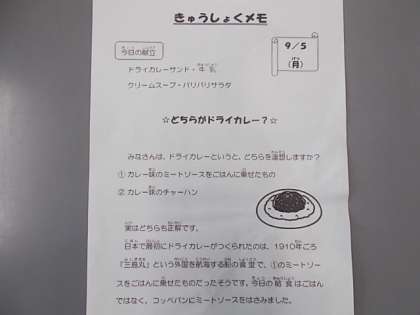 きゅうしょくメモ
9/5
(月)
今日の献立
ドライカレーサンド・牛乳
クリームスープ・パリパリサラダ
☆どちらがドライカレー？☆
みなさんは、ドライカレーというと、どちらを連想しますか？
① カレー味のミートソースをごはんに乗せたもの
② カレー味のチャーハン
実はどちらも正解です。
日本で最初にドライカレーがつくられたのは、1910年ごろ
『三島丸』という外国を航海する船の食堂で、①のミートソー
スをごはんに乗せたものだったそうです。今日の給食はごはん
ではなく、コッペパンにミートソースをはさみました。